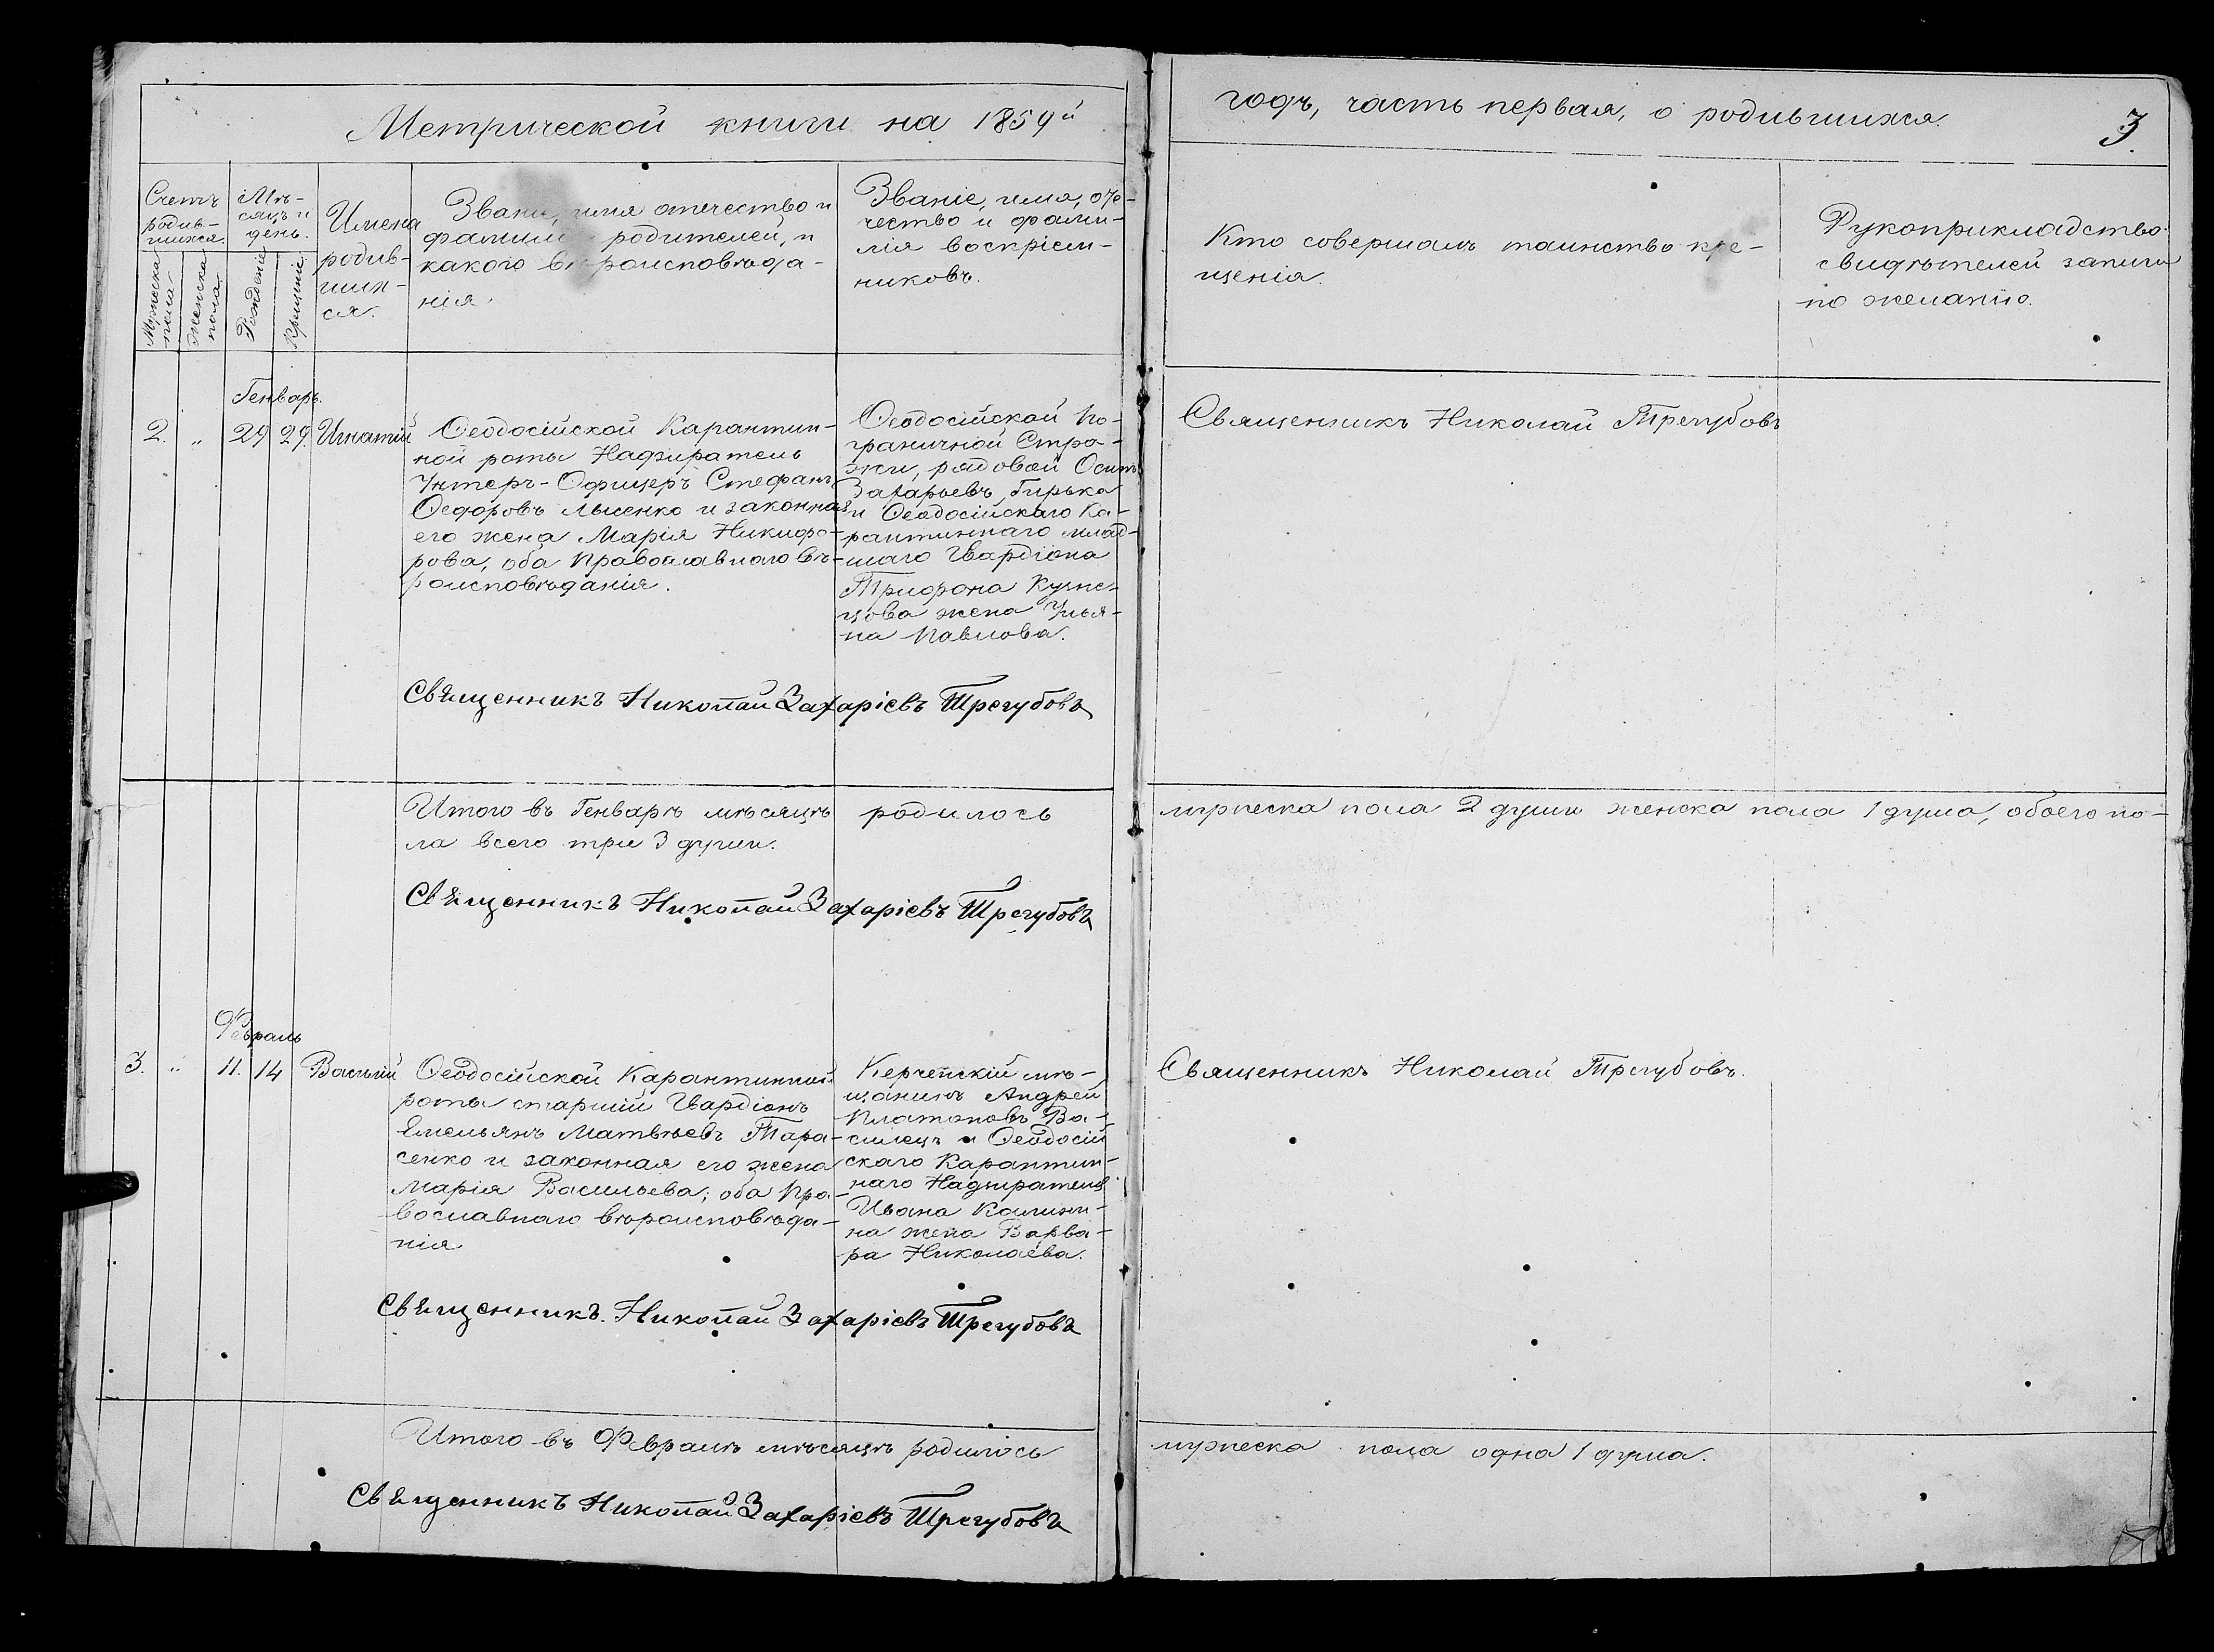 Метрической книги на 1859й
годъ, часть первая, о родившихся.
3.
Счетъ
родив-
шихся.
Мѣ-
сяцъ и
день.
Мужеска
пола
Женска
пола.
Рожденія
Крещенія
Имена
родив-
ших-
ся.
Званіе, имя отечество и
фамилія родителей, и
какого вѣроисповѣда-
нія.
Званіе, имя, оте-
чество и фами-
лія воспріем-
никовъ.
Кто совершалъ таинство кре-
щенія.
Рукоприкладство
свидѣтелей записи
по желанію.
Генварь.
2. „ 29 29. Игнатій
Ѳеодосійской Карантин-
ной роты Надзиратель
Унтеръ-Офицеръ Стефанъ
Ѳедоровъ Лысенко и законная
его жена Марія Никифо-
рова, оба Православнаго вѣ-
роисповѣданія.
Ѳеодосійской По-
граничной Стра-
жи, рядовой Осипъ
Захарьевъ Гирька
и Ѳеодосійскаго Ка-
рантиннаго млад-
шаго Гвардіона
Трифона Кузне-
цова жена Улья-
на Павлова.
Священникъ Николай Трегубовъ
Священникъ Николай Захаріевъ Трегубовъ
Итого въ Генварѣ мѣсяцѣ родилось мужеска пола 2 души женска пола 1 душа, обоего по-
ла всего три 3 души.
Священникъ Николай Захаріевъ Трегубовъ
Февраль
3. „ 11. 14 Василій
Ѳеодосійской Карантинной
роты старшій Гвардіонъ
Емельянъ Матвѣевъ Тара-
сенко и законная его жена
Марія Васильева; оба Пра-
вославнаго вѣроисповѣда-
нія
Керченскій мѣ-
щанинъ Андрей
Платоновъ Ва-
силецъ и Ѳеодосій
скаго Карантин-
наго Надзирателя
Ивана Калини-
на жена Варва-
ра Николаева.
Священникъ Николай Трегубовъ.
Священникъ. Николай Захаріевъ Трегубовъ
Итого въ Февралѣ мѣсяцѣ родилось мужеска пола одна 1 душа.
Священникъ Николай Захаріевъ Трегубовъ